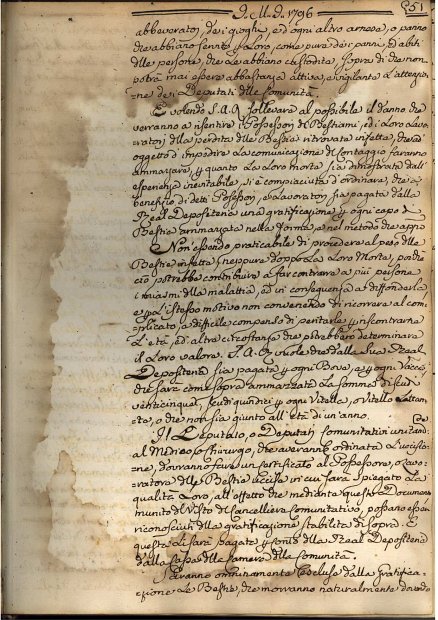 I. M. I. 1796 51
abbeveratoj, dei luoghi, e d'ogni altro arnese, o panno
che abbiano servito
delle persone, che le abbiano custodite, sopra di che non
potrà mai essere abbastanza attiva, e vigilante l'attenzio:
ne dei Deputati delle Comunità.
E volendo S.A.R. sollevare al possibile il danno che
verranno a risentire i Possessori di Bestiami, ed i loro Lavo:
ratori della perdita delle Bestie ritrovate infette, che ad
oggetto d'impedire la comunicazione di Contaggio saranno
ammazzate, quanto la loro morte sia dimostrata dall'
esperienza inevitabile, si è compiaciuta d'ordinare, che a
benefizio di detti Possessori, e Lavoratori sia pagata dalla
Real Depositeria una gratificazione p ogni capo di
Bestia ammazzato nella forma, e nel metodo che app.o
Non essendo praticabile di procedere al peso delle
Bestie infette neppure doppo la Loro Morte, perchè
ciò potrebbe contribuire a far contrarre a più persone
i miasmi della malattia, ed in conseguenza a diffonderla
e p l'istesso motivo non convenendo di ricorrere al com:
plicato, e difficile compenso di peritarle p riscontrarne
l'età, ed altre circostanze che potrebbero determinare
il Loro valore. S.A.R. vuole che dalla Sua Real
Depositeria sia pagata p ogni Bove, e p ogni Vacca,
che sarà come sopra ammazzata la somma di scudi
venticinque, scudi quindici p ogni Vitella, o Vitello
o che non sia giunto all'età di un'anno.
Il Deputato, o Deputati Comunitativi unitam.te
al Medico, e Chirurgo, che averanno ordinata l'uccisio:
ne, dovranno fare un certificato al Possessore, o Lavo:
ratore delle Bestie uccise in cui sarà spiegata la
qualità Loro, all'effetto che mediante questo Documento
munito del Visto del Cancelliere Comunitativo, possano esser
riconosciuti della gratificazione stabilita di sopra. E
questa li sarà pagata p conto della Real Depositeria
dalla Cassa del Camerº della Comunità.
Saranno onninamente escluse dalla Gratifica:
zione le Bestie, che morranno naturalmente dovendo